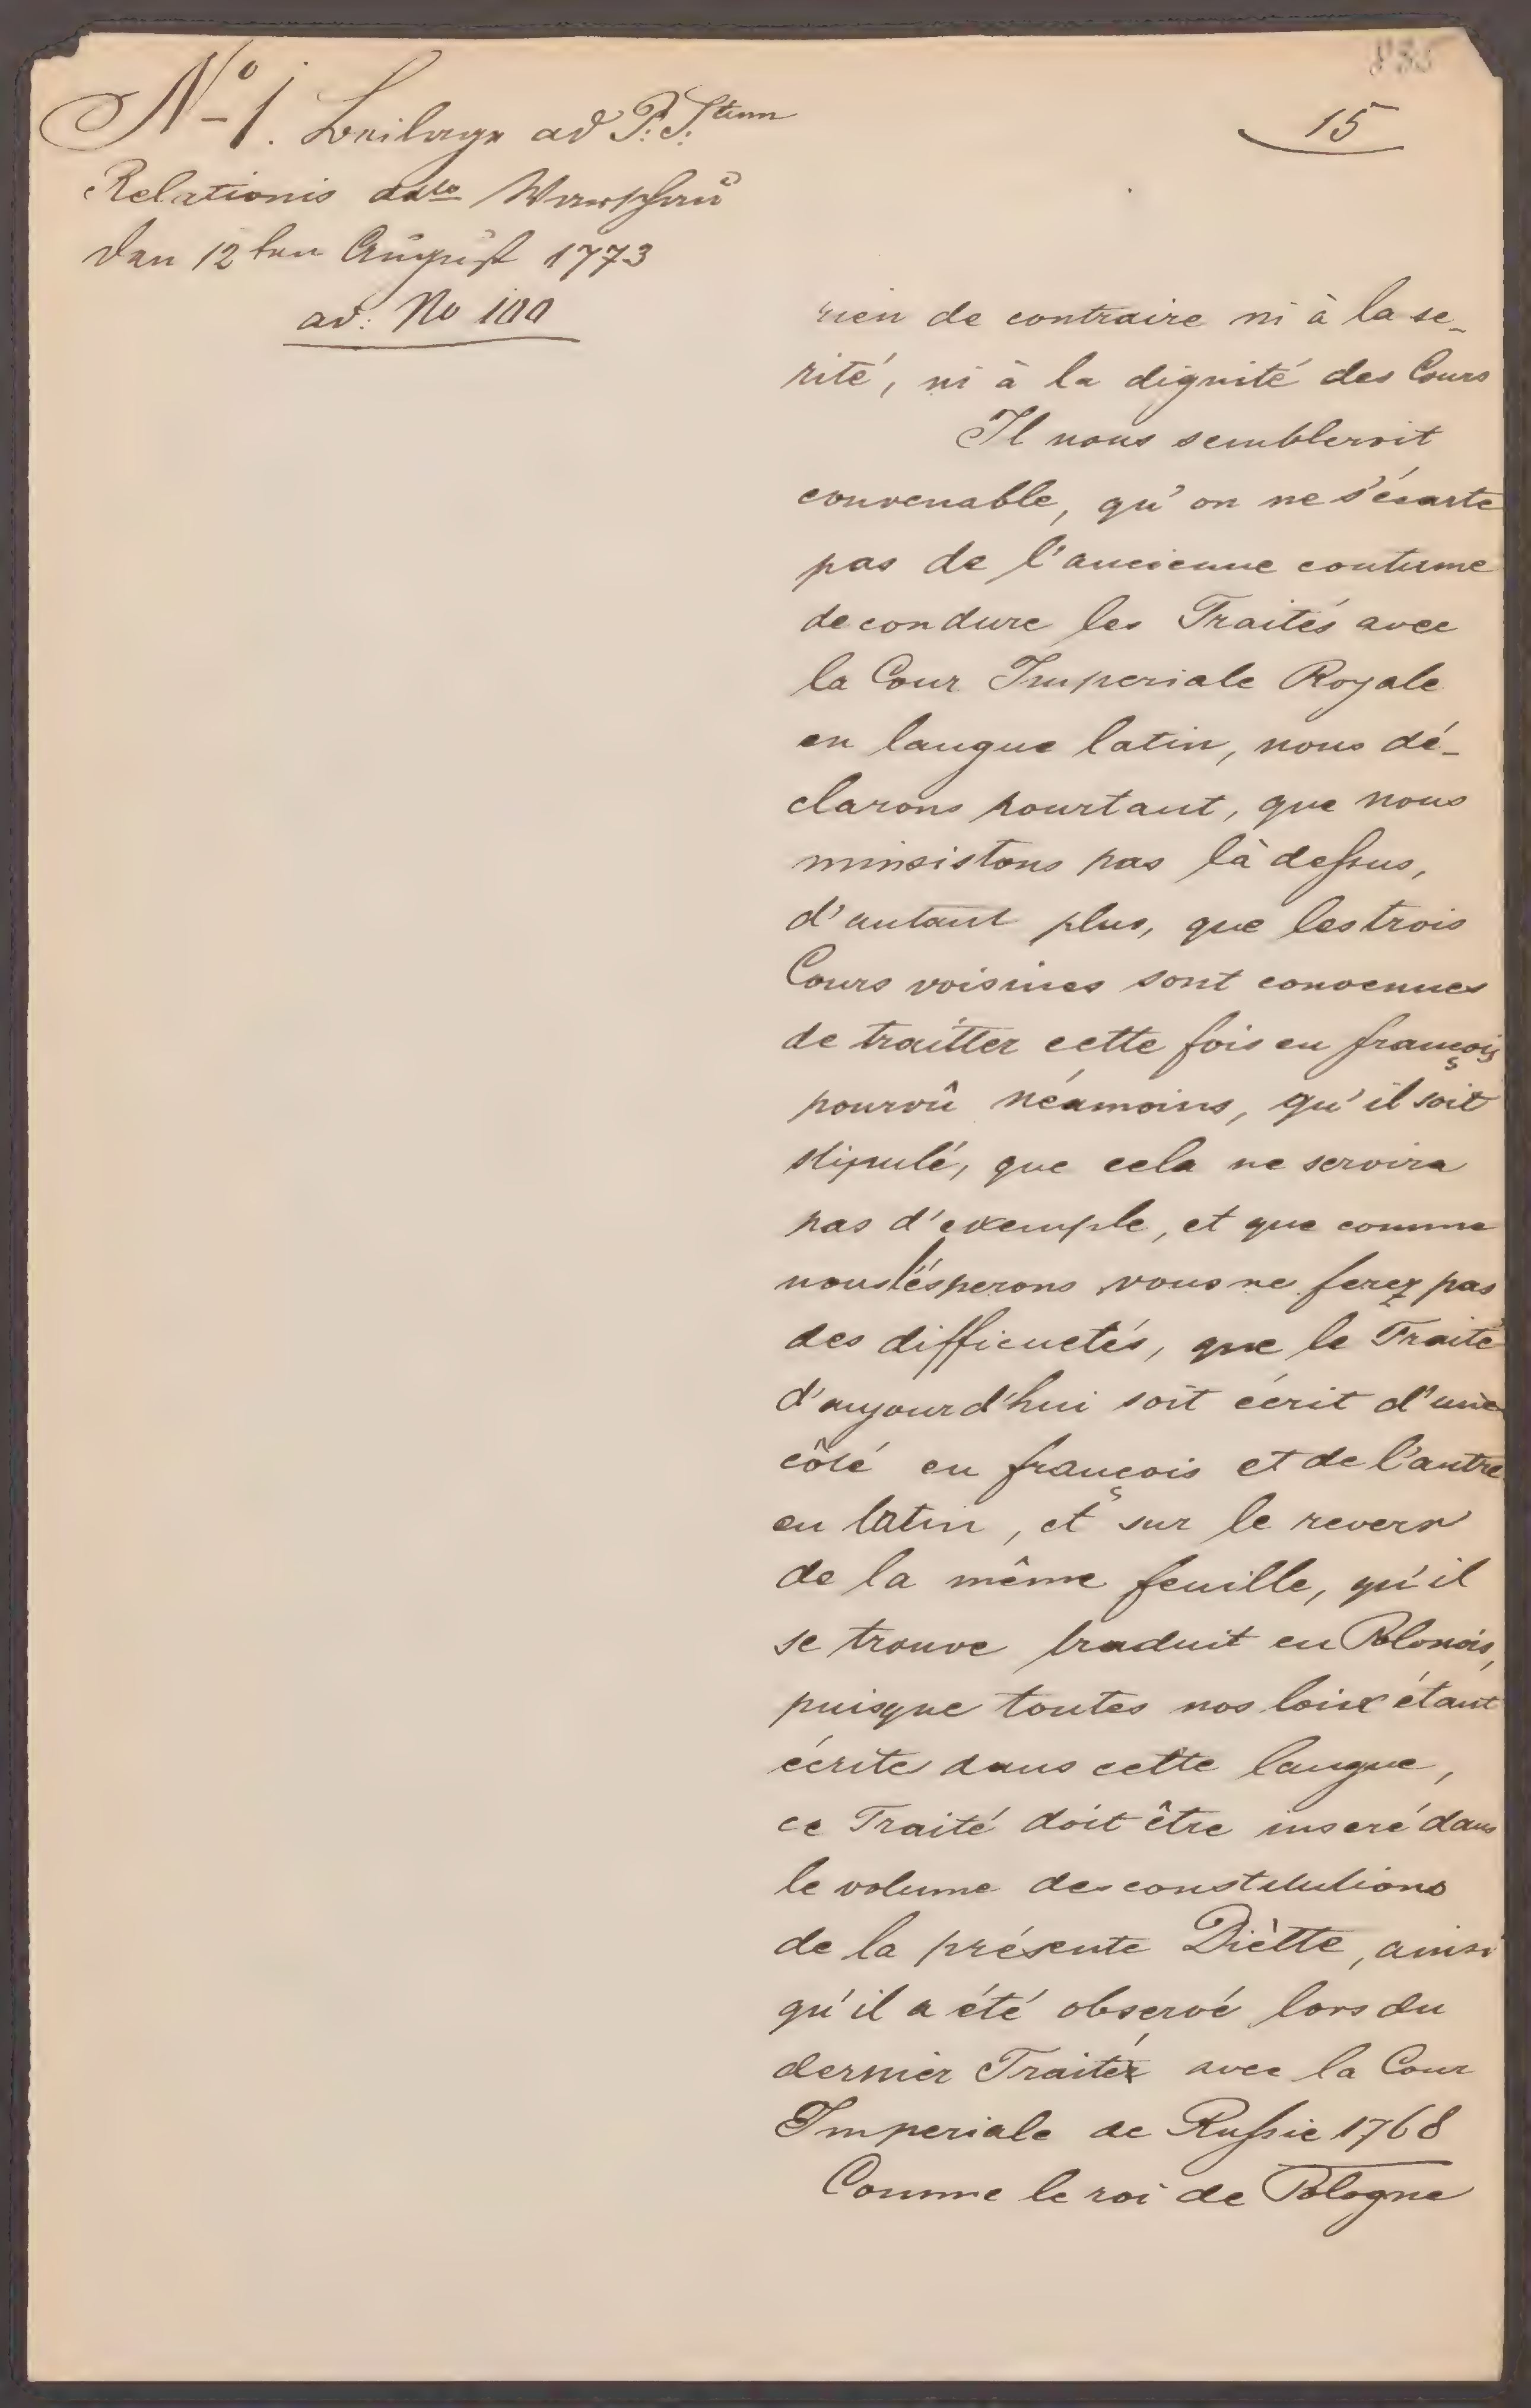 835
15
No 1. Beilage ad P. S.tum
Relationis ddto Warschau
den 12ten August 1773
ad: No 100
rien de contraire ni à la se-
rité, ni à la dignité des Cours
Il nous sembleroit
convenable, qu'on ne s'écarte
pas de l'ancienne coutume
de condure les Traités avec
la Cour Imperiale Royale
en langue latin, nous dé-
clarons pourtant, que nous
ninsistons pas là dessus,
d'autant plus, que les trois
Cours voisines sont convenues
de traitter cette fois en françois
pourvû néamoins, qu'il soit
stipulé, que cela ne servira
pas d'exemple, et que comme
nous l'ésperons vous ne ferez pas
des difficuetés, que le Traité
d'aujourd'hui soit écrit d'une
côté en françois et de l'autre
en latin, et sur le revers
de la même feuille, qu'il
se trouve traduit en Polonois,
puisque toutes nos loix étant
écrite dans cette langue,
ce Traité doit être inseré dans
le volume des constitutions
de la présente Diètte, ainsi
qu'il a été observé lors du
dernier Traité avec la Cour
Imperiale de Russie 1768
Comme le roi de Pologne